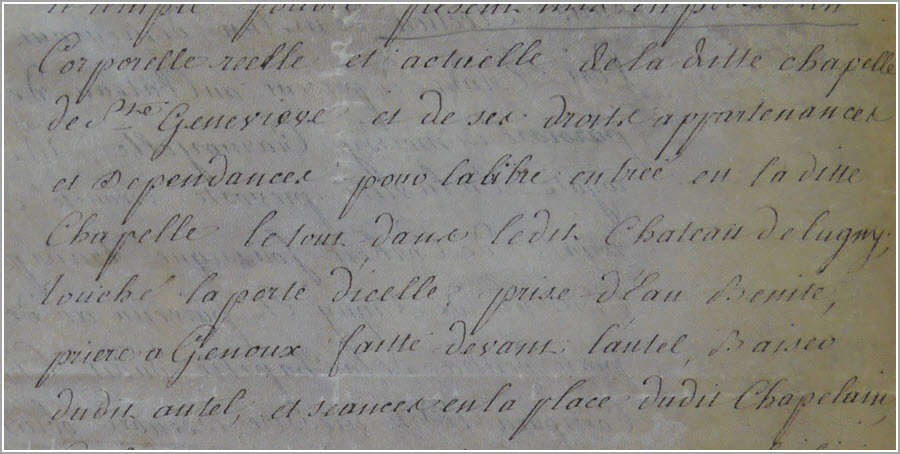 Corporelle reelle et actuelle de la ditte chapelle
de Ste Genevieve et de ses droits appartenances
et Dependances pour la libre entrée en la ditte
Chapelle le tout dans ledit Chateau de lugny,
touché la porte d'icelle, prise d'Eau Benite,
priere a Genoux faitte devant l'autel, Baiser
dudit autel, et seances en la place dudit Chapelain,